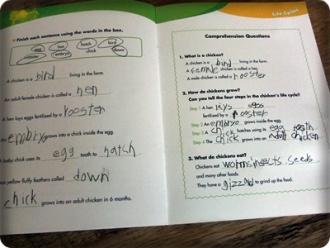 Finish each sentence using the words in the box.
A chicken is a bird living in the farm.
An adult female chicken is called a hen
A hen lays eggs fertilized by a rooster
embryo grows into a chick inside the egg.
A baby chick uses its egg tooth to hatch
yellow fluffy feathers called down
chick grows into an adult chicken in 6 months.
Life Cycles
Comprehension Questions
1. What is a chicken?
A chicken is a bird living in the farm.
A female chicken is called a hen
A male chicken is called a rooster
2. How do chickens grow?
Can you tell the four steps in the chicken's life cycle?
Step 1 A hen lays eggs
fertilized by a rooster
Step 2 An embryo grows inside the egg
Step 3 A chick hatches using its egg tooth
Step 4 The chick grows into an adult chicken
3. What do chickens eat?
Chickens eat worms insects seeds
and many other foods.
They have a gizzard to grind up the food.